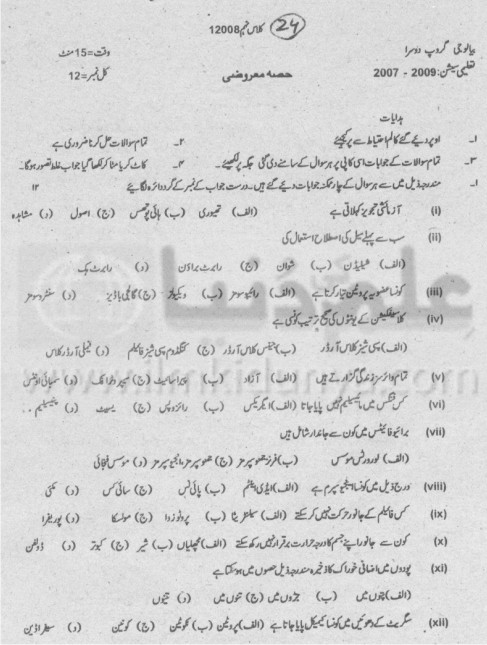 بیالوجی گروپ دوسرا
24
کلاس نہم 12008
وقت=15 منٹ
تعلیمی سیشن: 2009 - 2007
حصہ معروضی
کل نمبر=12
ہدایات
۱۔ اوپر دیے گئے کالم احتیاط سے پر کیجئے ۲۔ تمام سوالات حل کرنا ضروری ہے
۳۔ تمام سوالات کے جوابات اسی کاپی پر ہر سوال کے سامنے دی گئی جگہ پر لکھیئے۔ ۴۔ کاٹ کر یا مٹا کر لکھا گیا جواب غلط تصور ہوگا۔
۱۔ مندرجہ ذیل میں سے ہر سوال کے چار ممکنہ جوابات دیے گئے ہیں۔ درست جواب کے نمبر کے گرد دائرہ لگائیے ۱۲
(i) آزمائشی تجویز کہلاتی ہے (الف) تھیوری (ب) ہائپوتھسس (ج) اصول (د) مشاہدہ
(ii) سب سے پہلے سیل کی اصطلاح استعمال کی
(الف) شیلیڈن (ب) شوان (ج) رابرٹ براؤن (د) رابرٹ ہک
(iii) کونسا عضویہ پروٹین تیار کرتا ہے (الف) رائبوسومز (ب) ویکیولز (ج) گالجی باڈیز (د) سنٹروسومز
(iv) کلاسیفکیشن کے یونٹوں کی صحیح ترتیب کونسی ہے
(الف) سپی شیز کلاس آرڈر (ب) جینس کلاس آرڈر (ج) کنگڈم سپی شیز فائیلم (د) فیملی آرڈر کلاس
(v) تمام وائرسز زندگی گزارتے ہیں (الف) آزاد (ب) پیراسائیٹ (ج) سیپروفائٹک (د) سمبائی اونٹس
(vi) کس فنگس میں مائسیلیم نہیں پایا جاتا (الف) ایگریکس (ب) رائزوپس (ج) ییسٹ (د) پینسیلیم
(vii) برائیوفائیٹس میں کون سے جاندار شامل ہیں
(الف) لورورٹس موسس (ب) فرنز جمنو سپرمز (ج) جمنو سپرمز انجیو سپرمز (د) موسس فنجائی
(viii) درج ذیل میں کونسا انجیوسپرم ہے (الف) ایڈی اینٹم (ب) پائی نس (ج) سائی کس (د) مکئی
(ix) کس فائیلم کے جانور حرکت نہیں کر سکتے (الف) سیلنٹریٹا (ب) پروٹوزوا (ج) مولسکا (د) پوریفرا
(x) کون سے جانور اپنے جسم کا درجہ حرارت برقرار نہیں رکھ سکتے (الف) مچھلیاں (ب) شیر (ج) کبوتر (د) ڈولفن
(xi) پودوں میں اضافی خوراک کا ذخیرہ مندرجہ ذیل حصوں میں ہو سکتا ہے
(الف) پتوں میں (ب) جڑوں میں (ج) تنوں میں (د) تینوں
(xii) سگریٹ کے دھوئیں میں کونسا کیمیکل پایا جاتا ہے (الف) پروٹین (ب) نکوٹین (ج) کونین (د)
علم کی دنیا